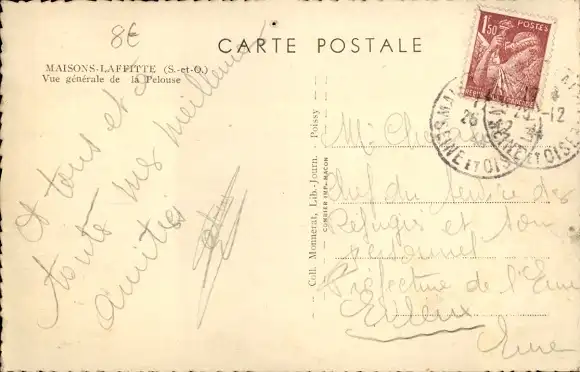 8€
CARTE POSTALE
MAISONS-LAFFITTE (S.-et-O.)
Vue générale de la Pelouse
Et tous et
toute mes meilleures
amitiés
Coll. Monnerat, Lib.-Journ. Poissy
COMBIER IMP. MACON
1F50 POSTES
26
12
SEINE ET OISE
Chef du Service des
Réfugiés et son
personnel
Préfecture de l'Eure
Evreux
Eure